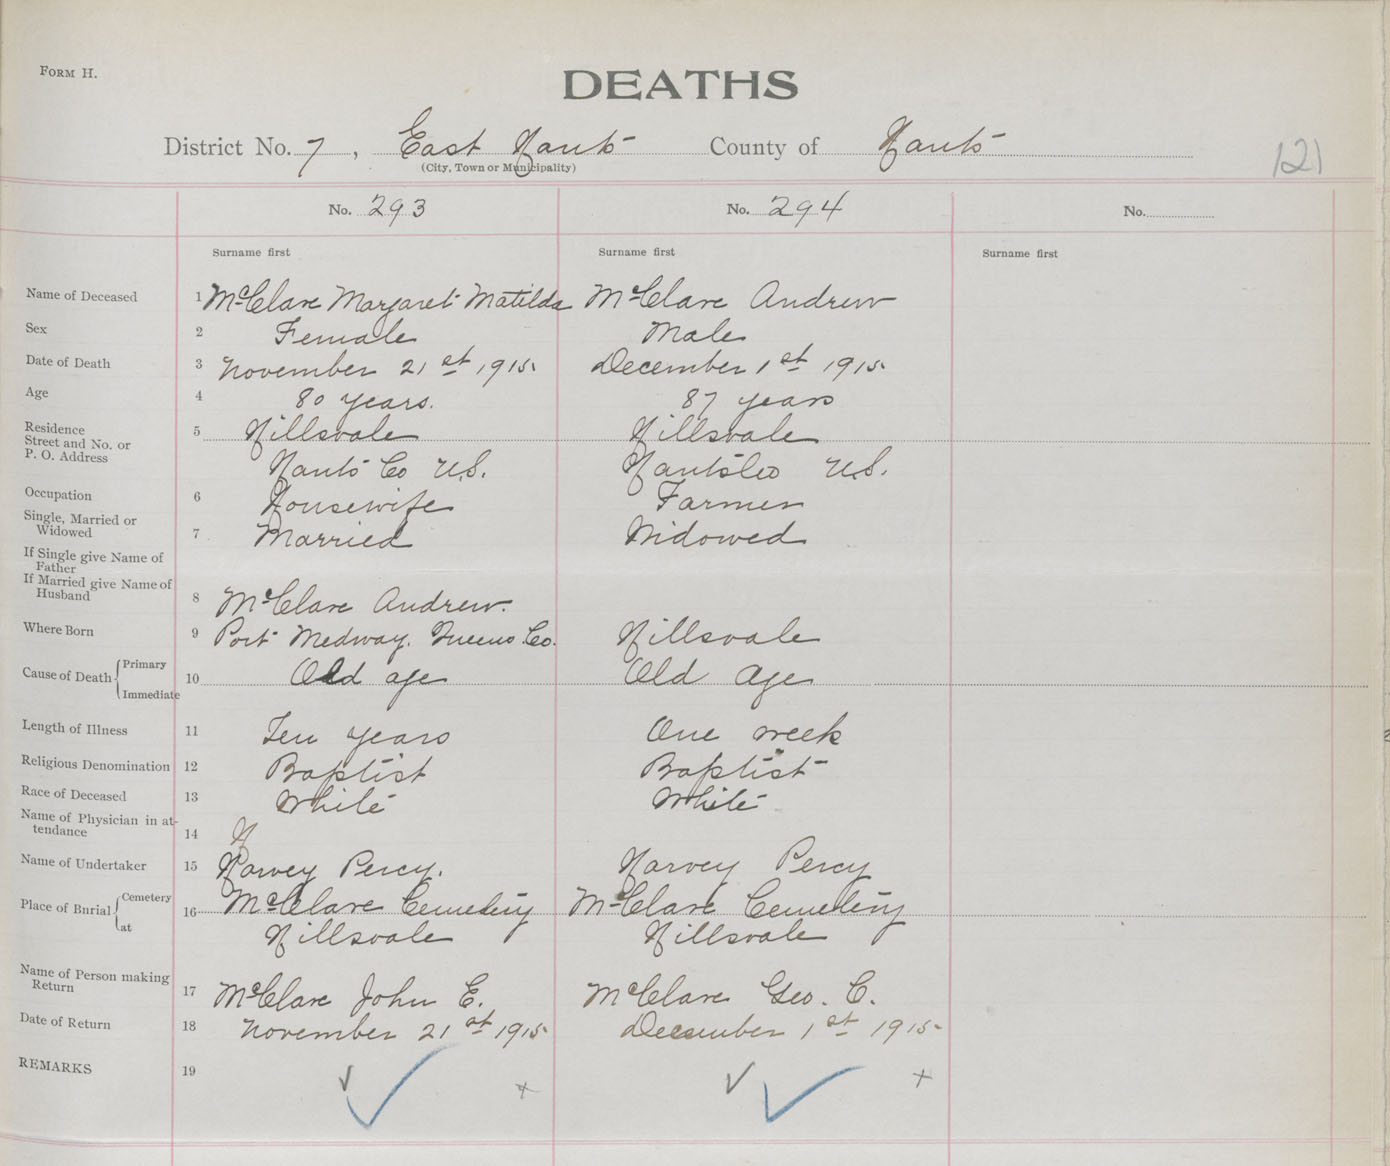 FORM H.
DEATHS
District No. 7, East Hants County of Hants
(City, Town or Municipality)
121
No. 293 No. 294 No.
Surname first Surname first Surname first
Name of Deceased 1 McClare Margaret Matilda McClare Andrew
Sex 2 Female Male
Date of Death 3 November 21st, 1915. December 1st 1915.
Age 4 80 years. 87 years
Residence
Street and No. or
P. O. Address 5 Hillsvale Hillsvale
Hants Co N.S. Hants Co N.S.
Occupation 6 Housewife Farmer
Single, Married or
Widowed 7 Married Widowed
If Single give Name of
Father
If Married give Name of
Husband 8 McClare Andrew.
Where Born 9 Port Medway, Queens Co. Hillsvale
Cause of Death Primary Immediate 10 Old age Old Age
Length of Illness 11 Ten years One week
Religious Denomination 12 Baptist Baptist
Race of Deceased 13 White White
Name of Physician in at-
tendance 14 H
Name of Undertaker 15 Harvey Percy. Harvey Percy
Place of Burial Cemetery at 16 McClare Cemetery McClare Cemetery
Hillsvale Hillsvale
Name of Person making
Return 17 McClare John E. McClare Geo. C.
Date of Return 18 November 21st 1915. December 1st 1915.
REMARKS 19